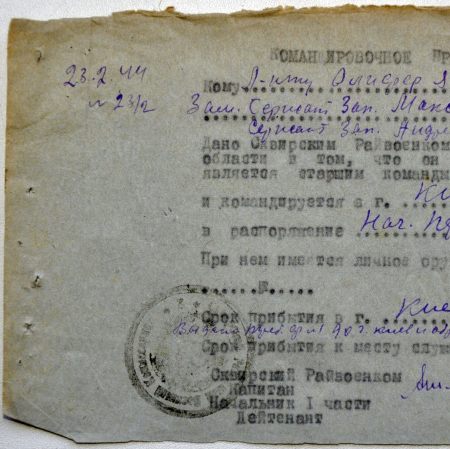 КОМАНДИРОВОЧНОЕ ПР
23.2.44
Кому Л-нту
№ 23/2
Зам. Сержант Зап. Макс
Сержант Зап. Андре
Дано Сквирским Райвоенком
области в том, что он
является старшим команды
и командируется в г. Ки
в распоряжение Нач.
При нем имеется личное ору
Срок прибытия в г. Кие
Срок прибытия к месту служ
Сквирский Райвоенком
Капитан
Начальник I части
Лейтенант